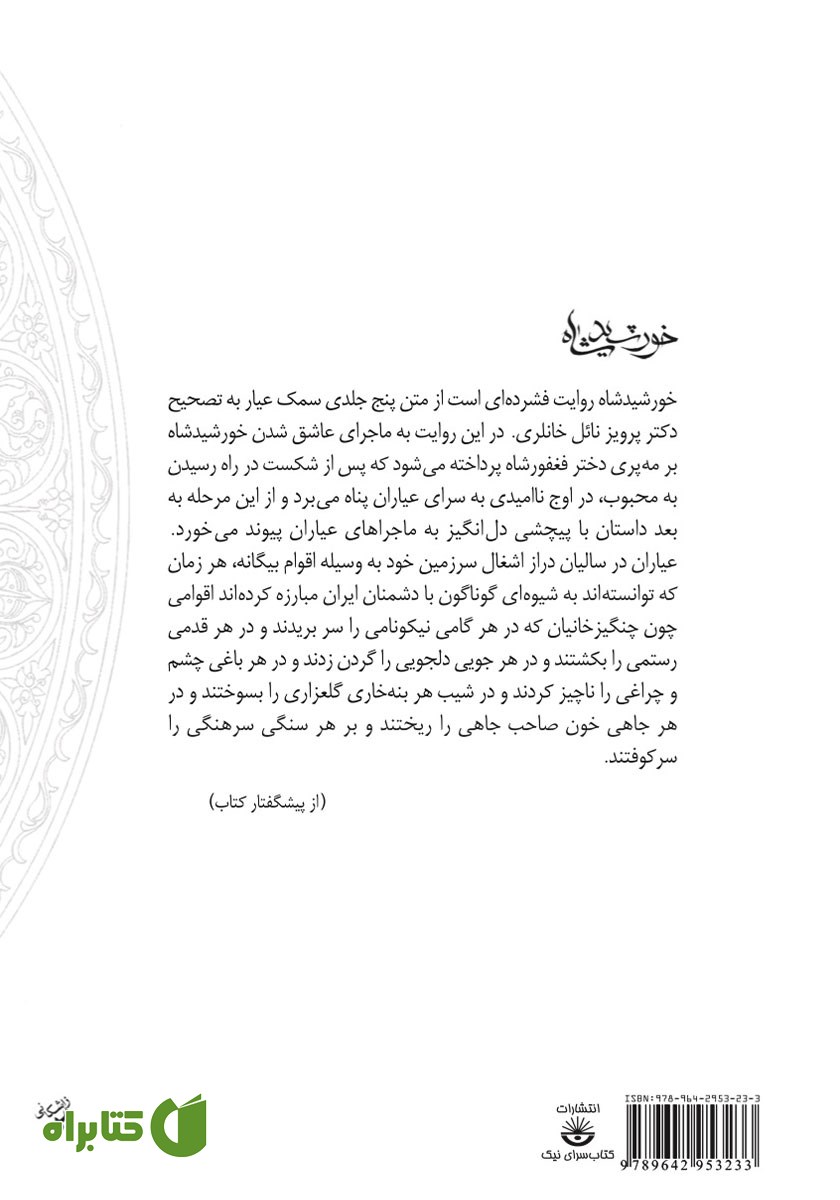 خورشیدشاه
خورشیدشاه روایت فشرده‌ای است از متن پنج جلدی سمک عیار به تصحیح
دکتر پرویز نائل خانلری. در این روایت به ماجرای عاشق شدن خورشیدشاه
بر مه‌پری دختر فغفورشاه پرداخته می‌شود که پس از شکست در راه رسیدن
به محبوب، در اوج ناامیدی به سرای عیاران پناه می‌برد و از این مرحله به
بعد داستان با پیچشی دل‌انگیز به ماجراهای عیاران پیوند می‌خورد.
عیاران در سالیان دراز اشغال سرزمین خود به وسیله اقوام بیگانه، هر زمان
که توانسته‌اند به شیوه‌ای گوناگون با دشمنان ایران مبارزه کرده‌اند اقوامی
چون چنگیزخانیان که در هر گامی نیکونامی را سر بریدند و در هر قدمی
رستمی را بکشتند و در هر جویی دلجویی را گردن زدند و در هر باغی چشم
و چراغی را ناچیز کردند و در شیب هر بنه‌خاری گلعزاری را بسوختند و در
هر جاهی خون صاحب جاهی را ریختند و بر هر سنگی سرهنگی را
سرکوفتند.
(از پیشگفتار کتاب)
کتابراه
انتشارات
کتاب‌سرای نیک
ISBN:978-964-2953-23-3
9 789642 953233